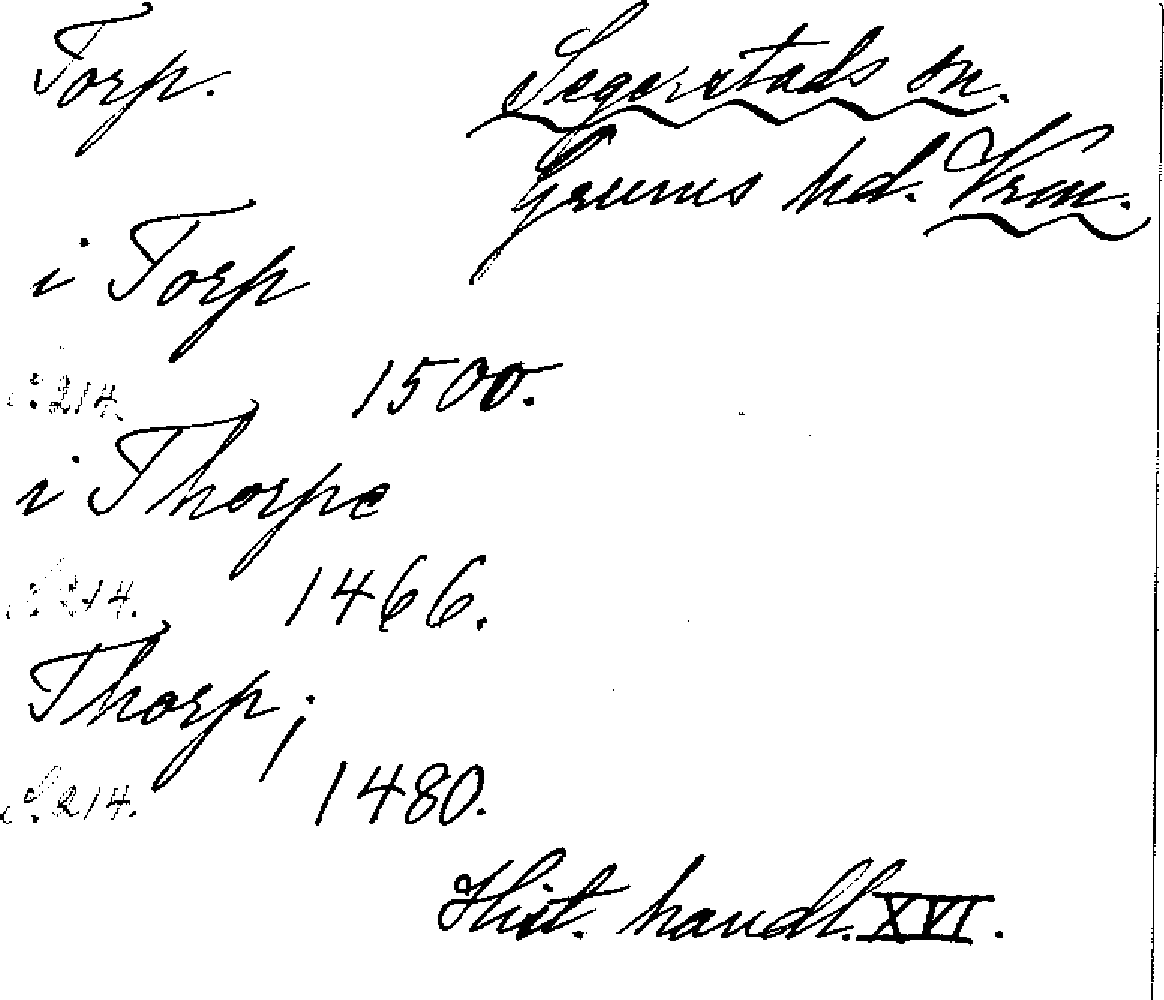 Torp.
Segerstads sn.
Grums hd. Vrm.
i Torp
S. 214. 1500.
i Thorpe
S. 214. 1466.
Thorp;
S. 214. 1480.
Hist. handl. XVI.